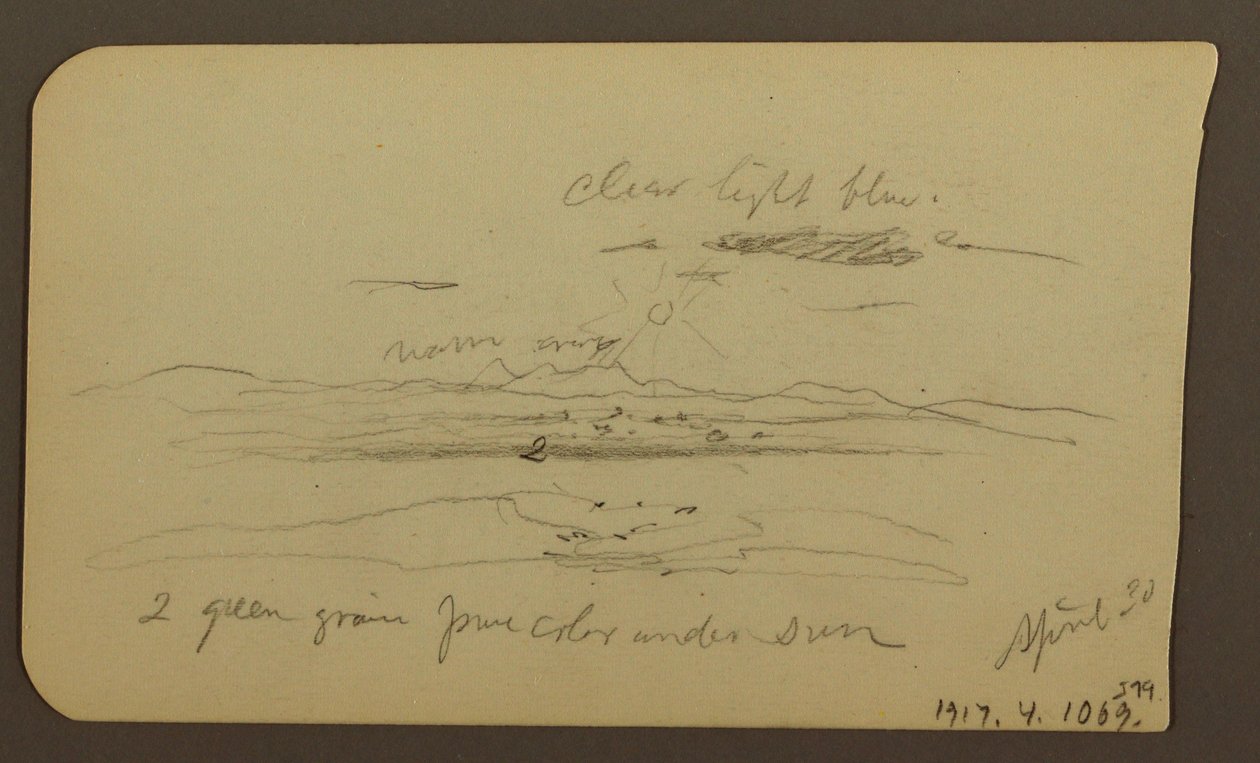 clear light blue.
warm
2
2 green grain pure color under sun
April 30
579.
1917. 4. 1069.